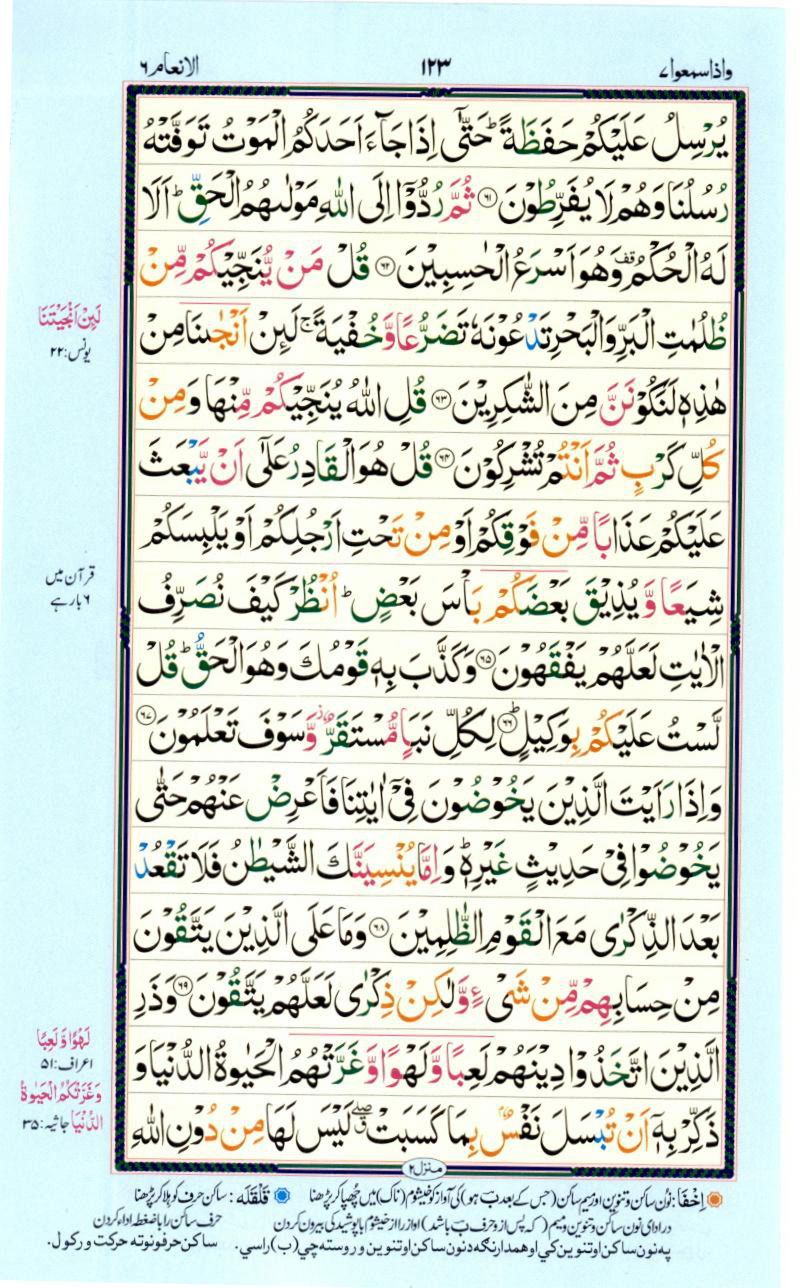 واذاسمعوا۷ ۱۲۳ الانعام۶
يُرْسِلُ عَلَيْكُمْ حَفَظَةً ؕ حَتّٰۤى اِذَا جَآءَ اَحَدَكُمُ الْمَوْتُ تَوَفَّتْهُ
رُسُلُنَا وَهُمْ لَا يُفَرِّطُوْنَ ۶۱ ثُمَّ رُدُّوْۤا اِلَى اللّٰهِ مَوْلٰىهُمُ الْحَقِّ ؕ اَلَا
لَهُ الْحُكْمُ قف وَهُوَ اَسْرَعُ الْحٰسِبِيْنَ ۶۲ قُلْ مَنْ يُّنَجِّيْكُمْ مِّنْ
ظُلُمٰتِ الْبَرِّ وَالْبَحْرِ تَدْعُوْنَهٗ تَضَرُّعًا وَّخُفْيَةً ۚ لَئِنْ اَنْجٰىنَا مِنْ
هٰذِهٖ لَنَكُوْنَنَّ مِنَ الشّٰكِرِيْنَ ۶۳ قُلِ اللّٰهُ يُنَجِّيْكُمْ مِّنْهَا وَمِنْ
كُلِّ كَرْبٍ ثُمَّ اَنْتُمْ تُشْرِكُوْنَ ۶۴ قُلْ هُوَ الْقَادِرُ عَلٰۤى اَنْ يَّبْعَثَ
عَلَيْكُمْ عَذَابًا مِّنْ فَوْقِكُمْ اَوْ مِنْ تَحْتِ اَرْجُلِكُمْ اَوْ يَلْبِسَكُمْ
شِيَعًا وَّيُذِيْقَ بَعْضَكُمْ بَاْسَ بَعْضٍ ؕ اُنْظُرْ كَيْفَ نُصَرِّفُ
الْاٰيٰتِ لَعَلَّهُمْ يَفْقَهُوْنَ ۶۵ وَكَذَّبَ بِهٖ قَوْمُكَ وَهُوَ الْحَقُّ ؕ قُلْ
لَّسْتُ عَلَيْكُمْ بِوَكِيْلٍ ؕ ۶۶ لِكُلِّ نَبَاٍ مُّسْتَقَرٌّ ز وَّسَوْفَ تَعْلَمُوْنَ ۶۷
وَاِذَا رَاَيْتَ الَّذِيْنَ يَخُوْضُوْنَ فِيْۤ اٰيٰتِنَا فَاَعْرِضْ عَنْهُمْ حَتّٰى
يَخُوْضُوْا فِيْ حَدِيْثٍ غَيْرِهٖ ؕ وَاِمَّا يُنْسِيَنَّكَ الشَّيْطٰنُ فَلَا تَقْعُدْ
بَعْدَ الذِّكْرٰى مَعَ الْقَوْمِ الظّٰلِمِيْنَ ۶۸ وَمَا عَلَى الَّذِيْنَ يَتَّقُوْنَ
مِنْ حِسَابِهِمْ مِّنْ شَيْءٍ وَّلٰكِنْ ذِكْرٰى لَعَلَّهُمْ يَتَّقُوْنَ ۶۹ وَذَرِ
الَّذِيْنَ اتَّخَذُوْا دِيْنَهُمْ لَعِبًا وَّلَهْوًا وَّغَرَّتْهُمُ الْحَيٰوةُ الدُّنْيَا وَ
ذَكِّرْ بِهٖۤ اَنْ تُبْسَلَ نَفْسٌۢ بِمَا كَسَبَتْ ۖق لَيْسَ لَهَا مِنْ دُوْنِ اللّٰهِ
منزل۲
لَئِنْ اَنْجَيْتَنَا
یونس:۲۲
قرآن میں
۶ بار ہے
لَهْوًا وَّلَعِبًا
اعراف:۵۱
وَغَرَّتْكُمُ الْحَيٰوةُ
الدُّنْيَا جاثیہ:۳۵
اِخْفَا: نون ساکن و تنوین اور میم ساکن (جس کے بعد ب ہو) کی آواز کو خیشوم (ناک) میں چھپا کر پڑھنا قَلْقَلَه: ساکن حرف کو ہلا کر پڑھنا
در ادای نون ساکن و تنوین و میم (که پس از و حرف ب باشد) اواز را از خیشوم با پوشیدگی بیرون کردن حرف ساکن را با ضغطه اداء کردن
په نون ساکن او تنوین کي او همدارنګه د نون ساکن او تنوین و روسته چي (ب) راسي. ساکن حرفونو ته حرکت ورکول.